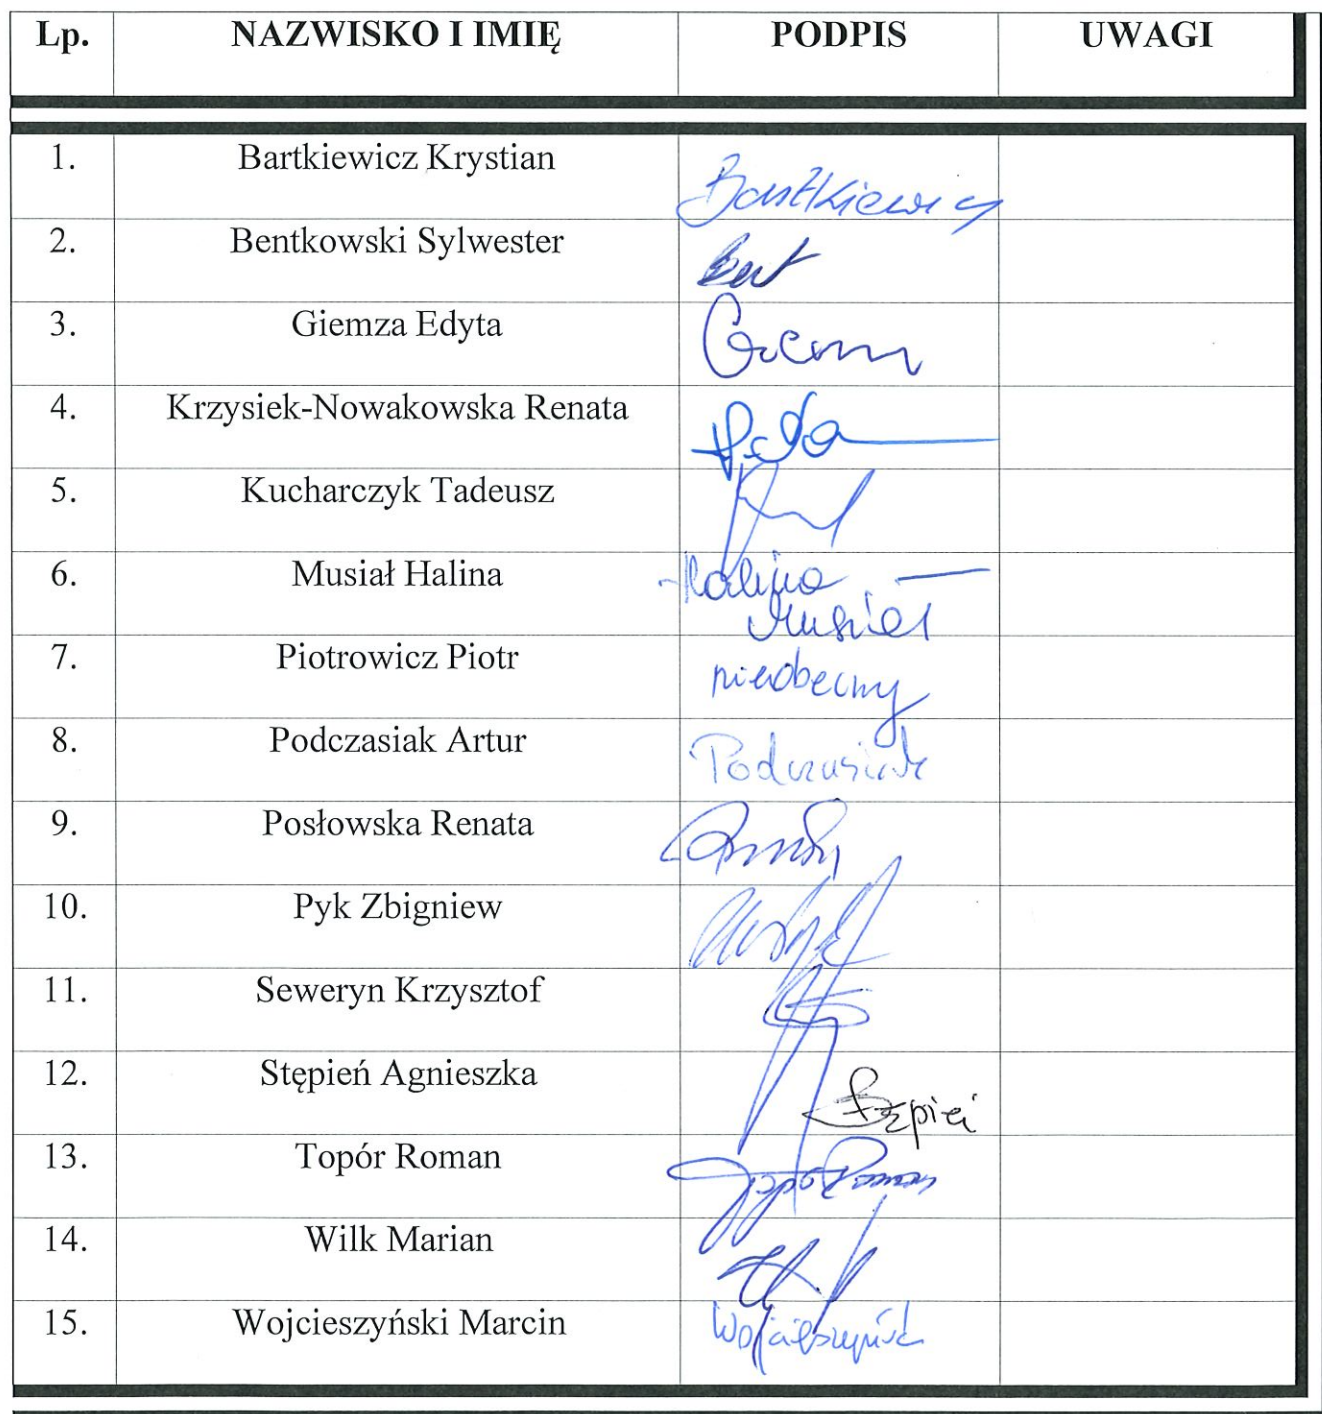 Lp. NAZWISKO I IMIĘ PODPIS UWAGI
1. Bartkiewicz Krystian Bartkiewicz
2. Bentkowski Sylwester
3. Giemza Edyta
4. Krzysiek-Nowakowska Renata
5. Kucharczyk Tadeusz
6. Musiał Halina Halina
Musiał
7. Piotrowicz Piotr nieobecny
8. Podczasiak Artur Podczasiak
9. Posłowska Renata
10. Pyk Zbigniew
11. Seweryn Krzysztof
12. Stępień Agnieszka
13. Topór Roman
14. Wilk Marian
15. Wojcieszyński Marcin